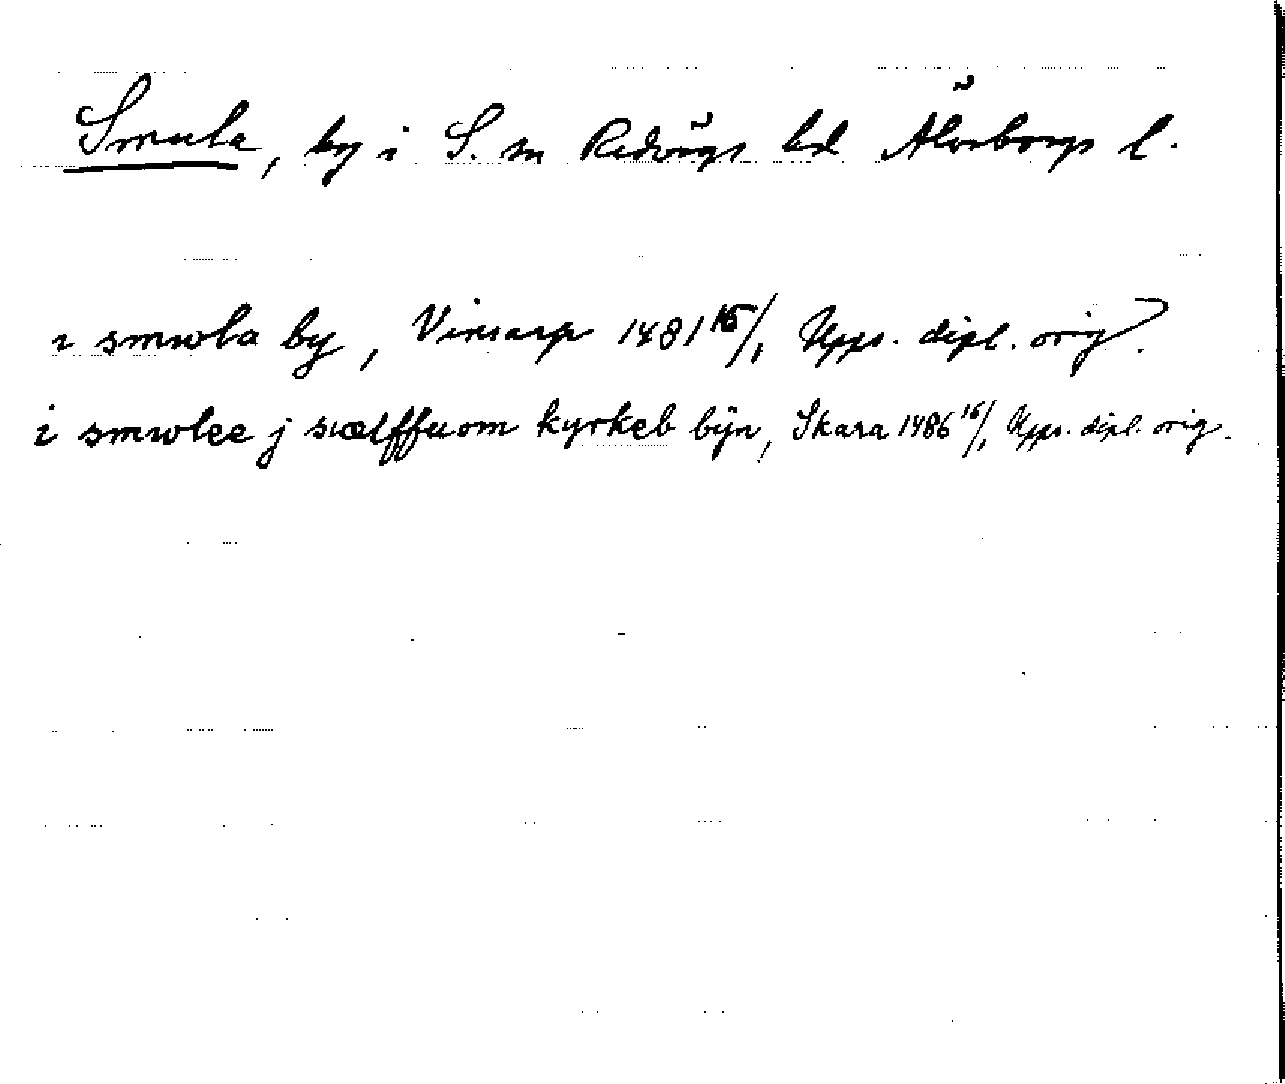 Smula, by i S. sn Redvägs hd Älvsborgs l.
i smwla by, Vinsarp 1481 16/1, Upps. dipl. orig.
i smwlee j siælffuom kyrkeb bijn, Skara 1486 16/1, Upps. dipl. orig.